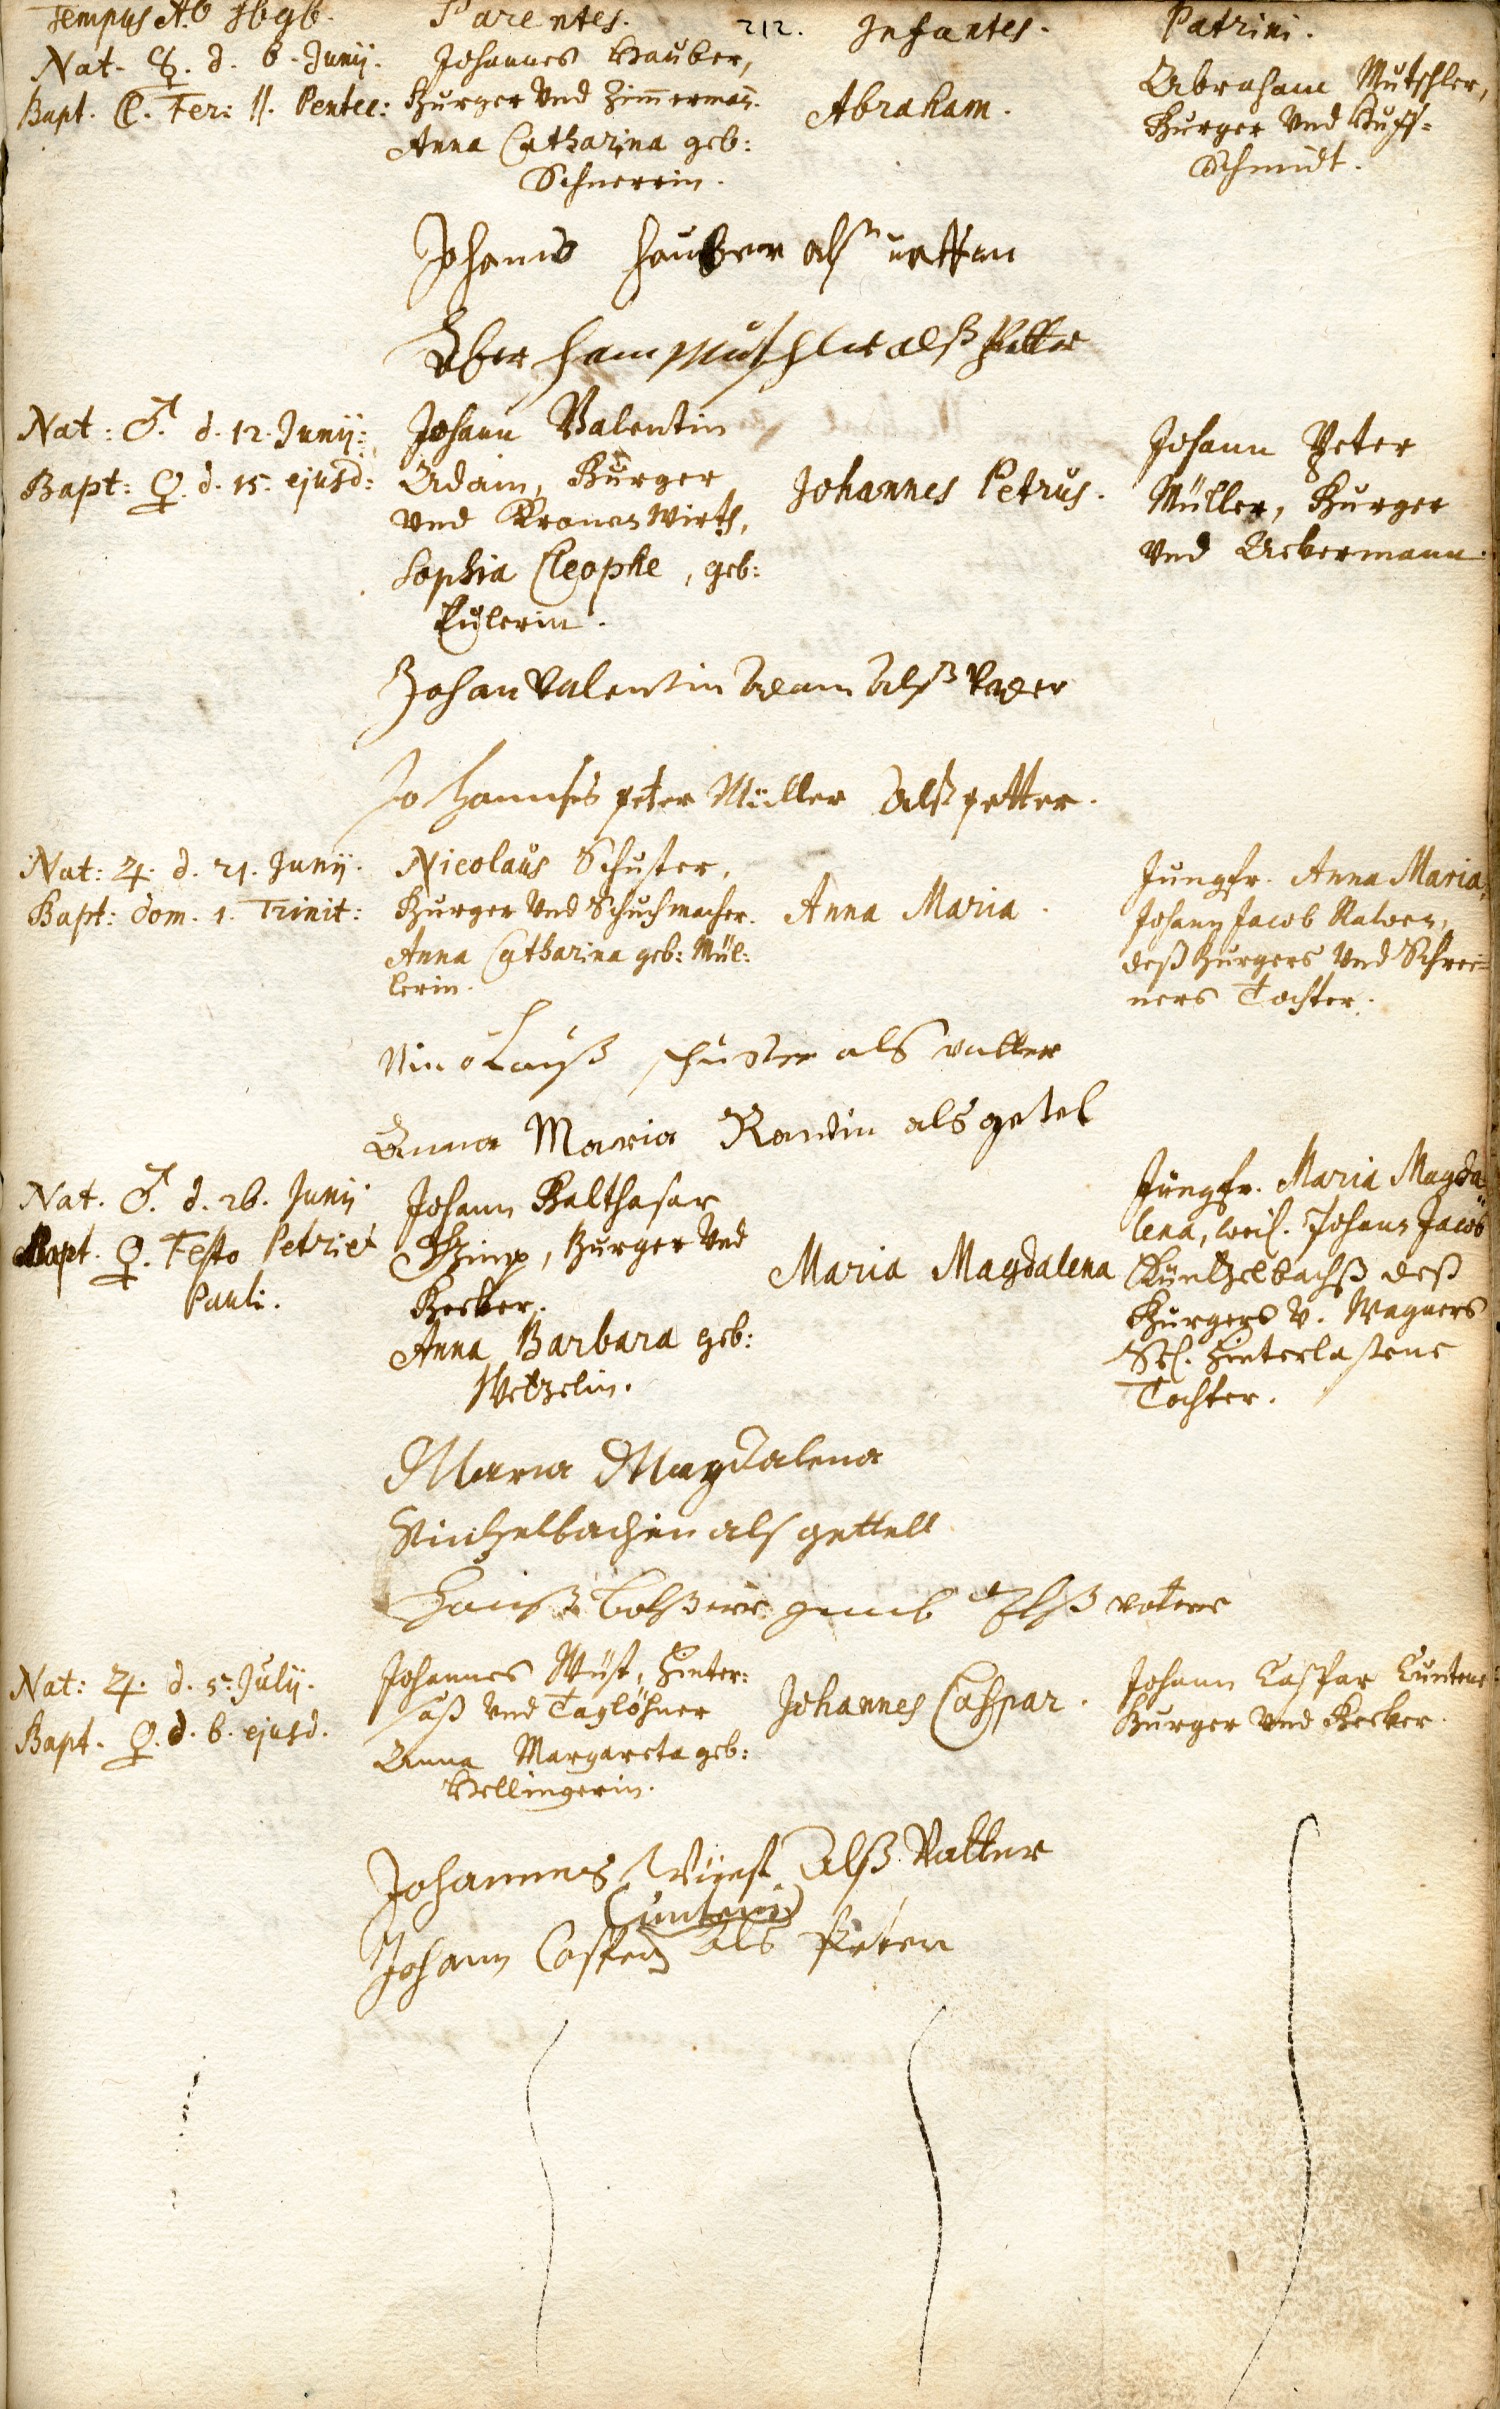 Tempus Ao 1696. Parentes. 212. Infantes. Patrini.
Nat. ☿. d. 6. Junij.
Bapt. ☾. Fer: II. Pentec:
Johannes Hauber,
Burger Und Zimmerman.
Anna Catharina geb:
Schnerrin.
Abraham.
Abraham Mutschler,
Burger Und Huff-
Schmidt.
Johannes Hauber alß
Aberham Mutschler alß Petter
Nat: ♂. d. 12. Junij:
Bapt: ♀. d. 15. ejusd:
Johann Valentin
Adam, Burger
Und Kronen Wirth,
Sophia Cleophe, geb:
Eulerin.
Johannes Petrus.
Johann Peter
Müller, Burger
Und Ackermann.
Johan Valentin Adam Alß Vader
Johannes peter Müller Alß petter.
Nat: ♃. d. 21. Junij.
Bapt: Dom. 1. Trinit:
Nicolaus Schuster,
Burger Und Schuchmacher.
Anna Catharina geb: Mül:
lerin.
Anna Maria.
Jungfr. Anna Maria,
Johann Jacob
deß Burgers Und Schrei=
ners Tochter.
Nicolauß schuster als vatter
Anna Maria als getel
Nat. ♂. d. 26. Junij
Bapt. ♀. Festo Petri et
Pauli.
Johann Balthasar
Burger Und
Becker.
Anna Barbara geb:
Wetzelin.
Maria Magdalena
Jungfr. Maria Magda=
lena, weil. Johann Jacob
Küntzelbachß deß
Burgers V. Wagners
Sel. hinterlaßene
Tochter.
Maria Magdalena
Kintzelbachin als gettell
Hanß alß
Nat: ♃. d. 5. Julij.
Bapt. ♀. d. 6. ejusd.
Johannes Wüst, Hinter:
saß Und Taglöhner
Anna Margareta geb:
Hellingerin.
Johannes Caspar.
Johann Caspar Cuntene
Burger Und Becker.
Johannes Wüest Alß Vatter
Johann Casper als Peter